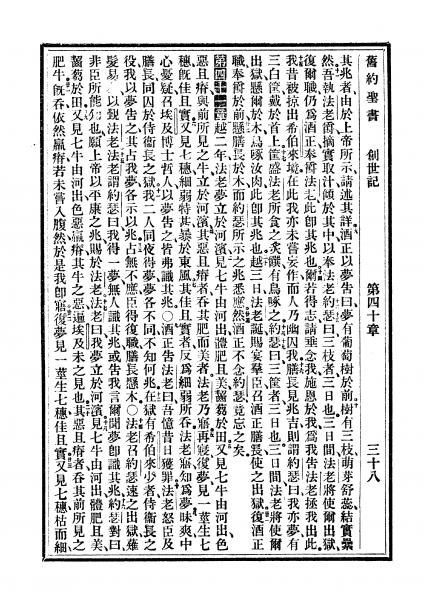 舊約聖書 創世記 第四十章 三十八
其兆者由於上帝所示請述其詳酒正以夢告曰夢有葡萄樹於前樹有三枝萌芽舒蕊結實纍
然吾執法老爵摘實取汁傾於其中以奉法老約瑟曰三枝者三日也三日間法老將使爾出獄
復爾職仍爲酒正奉爵法老此即其兆也爾若得志請垂念我施恩於我爲我告法老拯我出此
我昔被掠出希伯來境在此我亦未嘗妄作而人乃幽囚我膳長見兆吉則謂約瑟曰我亦夢有
三白筐戴於首上筐盛法老所食之炙饌有鳥啄之約瑟曰三筐者三日也三日間法老將使爾
出獄懸爾於木鳥啄汝肉此即其兆也越三日法老誕賜宴羣臣召酒正膳長使之出獄復酒正
職奉爵於前懸膳長於木而約瑟所示之兆悉應然酒正不念約瑟竟忘之矣
第四十一章越二年法老夢立於河濱見七牛由河出體肥且美齧芻於田又見七牛由河出色
惡且瘠與前所見之牛立於河濱其惡且瘠者吞其肥而美者法老乃寤再寢復夢見一莖生七
穗旣佳且實又見七穗細弱特甚萎於東風其佳且實者反爲細弱所吞法老寤知爲夢昧爽中
心憂疑召埃及博士哲人以夢告之皆弗識其兆○酒正告法老曰吾憶昔日獲罪法老怒臣及
膳長同囚於侍衛長之獄我二人同夜得夢夢各不同不知何兆在獄有希伯來少者侍衛長之
役我以夢告之其占我夢各示以兆占無不應臣得復職膳長懸木○法老召約瑟速之出獄薙
髮易衣以覲法老法老謂約瑟曰我得一夢無人識其兆或告我言爾聞夢即識其兆約瑟對曰
非臣所能爲也願上帝以平康之兆賜於法老法老曰我夢立於河濱見七牛由河出體肥且美
齧芻於田又見七牛由河出色惡羸瘠其牛之惡遍埃及未之見也其惡且瘠者吞其前所見之
肥牛旣吞依然羸瘠若未嘗入腹然於是我即寤復夢見一莖生七穗佳且實又見七穗枯而細